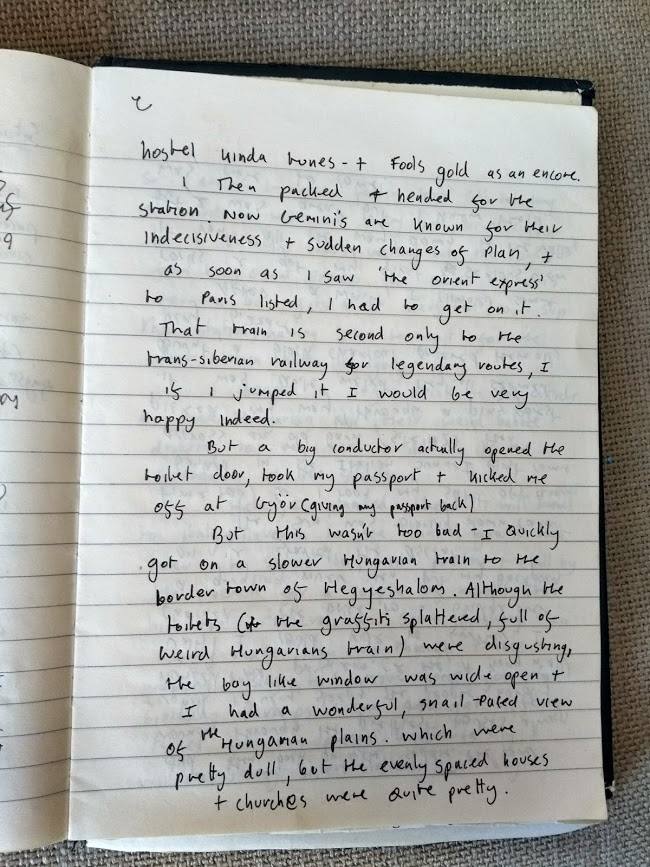 hostel kinda tunes - + Fools gold as an encore.
I Then packed + headed for the
station. Now Gemini's are known for their
indecisiveness + sudden changes of plan, +
as soon as I saw 'the orient express'
to Paris listed, I had to get on it.
That train is second only to the
trans-siberian railway for legendary routes, I
if I jumped it I would be very
happy indeed.
But a big conductor actually opened the
toilet door, took my passport + kicked me
off at Györ (giving my passport back)
But this wasn't too bad - I quickly
got on a slower Hungarian train to the
border town of Hegyeshalom. Although the
toilets (the graffiti splattered, full of
weird Hungarians train) were disgusting,
the bay like window was wide open +
I had a wonderful, snail-paced view
of the Hungarian plains. which were
pretty dull, but the evenly spaced houses
+ churches were quite pretty.